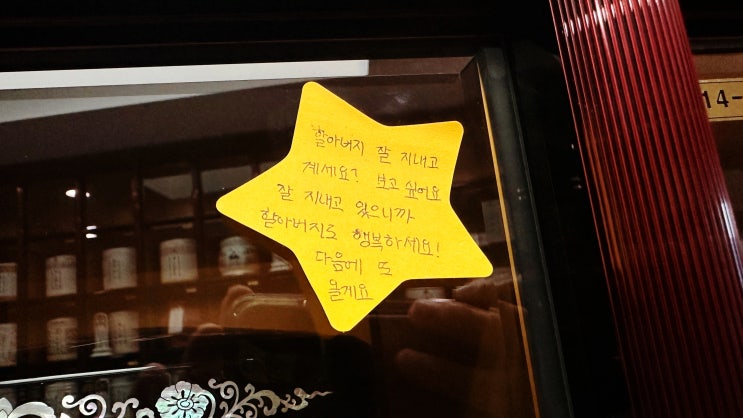 할아버지 잘 지내고
계세요? 보고 싶어요
잘 지내고 있으니까
할아버지도 행복하세요!
다음에 또
올게요
14-